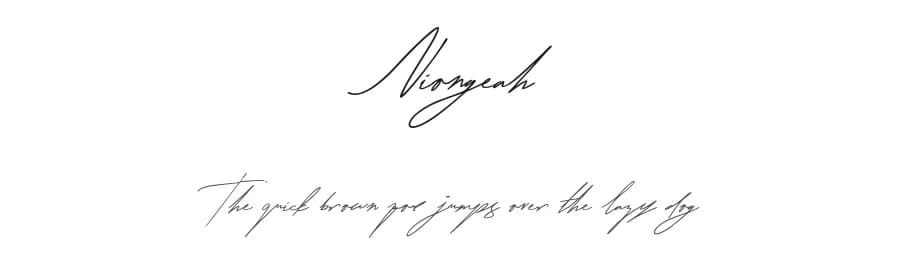 Niongeah
The quick brown fox jumps over the lazy dog